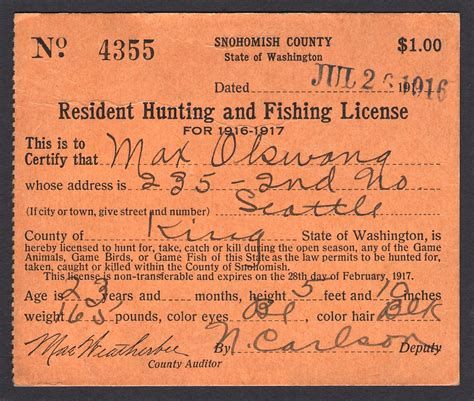 No. 4355 SNOHOMISH COUNTY $1.00
State of Washington
Dated JUL 2 1916
Resident Hunting and Fishing License
FOR 1916-1917
This is to
Certify that Max Olswang
whose address is 235-2nd No
(If city or town, give street and number) Seattle
County of King State of Washington, is
hereby licensed to hunt for, take, catch or kill during the open season, any of the Game
Animals, Game Birds, or Game Fish of this State as the law permits to be hunted for,
taken, caught or killed within the County of Snohomish.
This license is non-transferable and expires on the 28th day of February, 1917.
Age is 23 years and months, height 5 feet 10 inches
weight 165 pounds, color eyes Bl color hair Blk
Max Weatherbee By N. Carlson Deputy
County Auditor